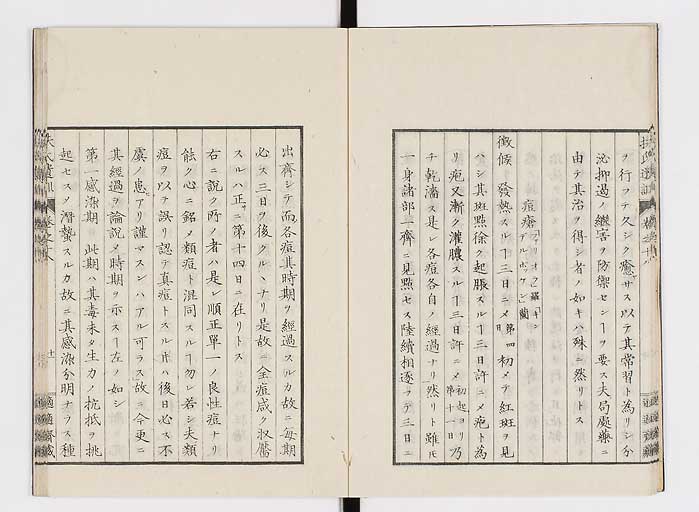 ヲ行フテ久シク癒サス以テ其常習ト為リシ分
泌抑過ノ継害ヲ防禦センヿヲ要ス夫局處藥ニ
由テ其治ヲ得シ者ノ如キハ殊ニ然リトス
痘瘡
徴候 發熱スルヿ三日ニメ第四日初メテ紅斑ヲ見
ハシ其斑點徐ク起脹スルヿ三日許ニメ疱ト為
リ疱又漸ク灌膿スルヿ三日許ニメ初起ヨリ第十一日乃
チ乾瀋ス是レ各痘各自ノ經過ナリ然リト雖𪜈
一身諸部一齊ニ見點セス陸續相逐フテ三日ニ
出齊シテ而各痘其時期ヲ經過スルカ故ニ毎期
必ス三日ヲ後クルヽナリ是故ニ全痘咸ク収靨
スルハ正ニ第十四日ニ在リトス
右ニ説ク所ノ者ハ是レ順正單一ノ良性痘ナリ
能ク心ニ銘メ類痘ト混同スルヿ勿レ若シ夫類
痘ヲ以テ誤リ認テ真痘トスル𪜈ハ後日必ス不
虞ノ患アリ謹マスンハアル可ラス故ニ今更ニ
其經過ヲ論説メ時期ヲ示スヿ左ノ如シ
第一感染期 此期ハ其毒未タ生力ノ抗抵ヲ挑
起セスメ潛蟄スルカ故ニ其感染分明ナラス種
適適齋藏